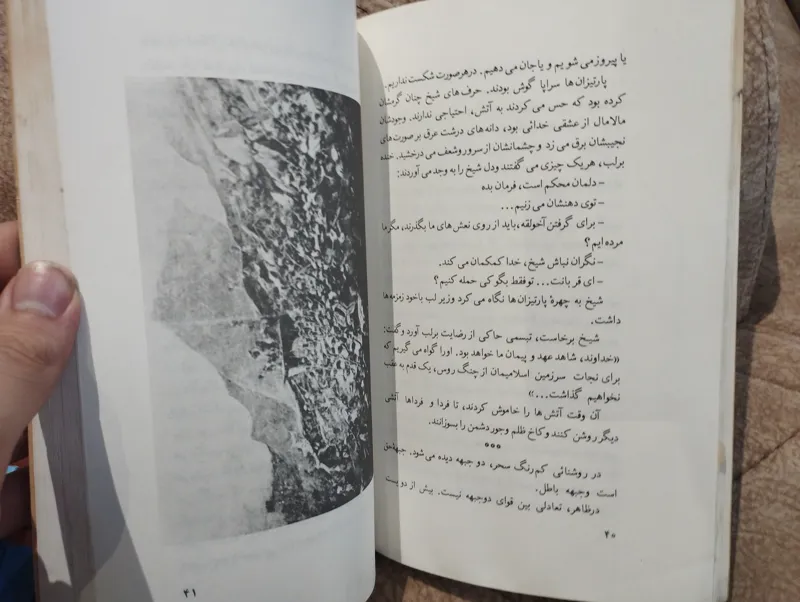 یا پیروزمی شویم ویاجان می دهیم. درهرصورت شکست نداریم.
پارتیزان ها سراپا گوش بودند. حرف های شیخ چنان گرمشان
کرده بود که حس می کردند به آتش، احتیاجی ندارند. وجودشان
مالامال از عشقی خدائی بود، دانه های درشت عرق بر صورت های
نجیبشان برق می زد و چشمانشان از سرور وشعف می درخشید. خنده
برلب، هریک چیزی می گفتند ودل شیخ را به وجد می آوردند:
– دلمان محکم است، فرمان بده
– توی دهنشان می زنیم...
– برای گرفتن آخولقه، باید از روی نعش های ما بگذرند، مگر ما
مرده ایم؟
– نگران نباش شیخ، خدا کمکمان می کند.
– ای قربانت... توفقط بگو کی حمله کنیم؟
شیخ به چهرهٔ پارتیزان ها نگاه می کرد وزیر لب باخود زمزمه ها
داشت.
شیخ برخاست، تبسمی حاکی از رضایت برلب آورد وگفت:
«خداوند، شاهد عهد و پیمان ما خواهد بود. اورا گواه می گیریم که
برای نجات سرزمین اسلامیمان از چنگ روس، یک قدم به عقب
نخواهیم گذاشت...»
آن وقت آتش ها را خاموش کردند، تا فردا و فرداها آتشی
دیگر روشن کنند وکاخ ظلم وجور دشمن را بسوزانند.
***
در روشنائی کم رنگ سحر، دو جبهه دیده می شود. جبهه حق
است وجبهه باطل.
درظاهر، تعادلی بین قوای دوجبهه نیست. بیش از دویست
۴۰
۴۱